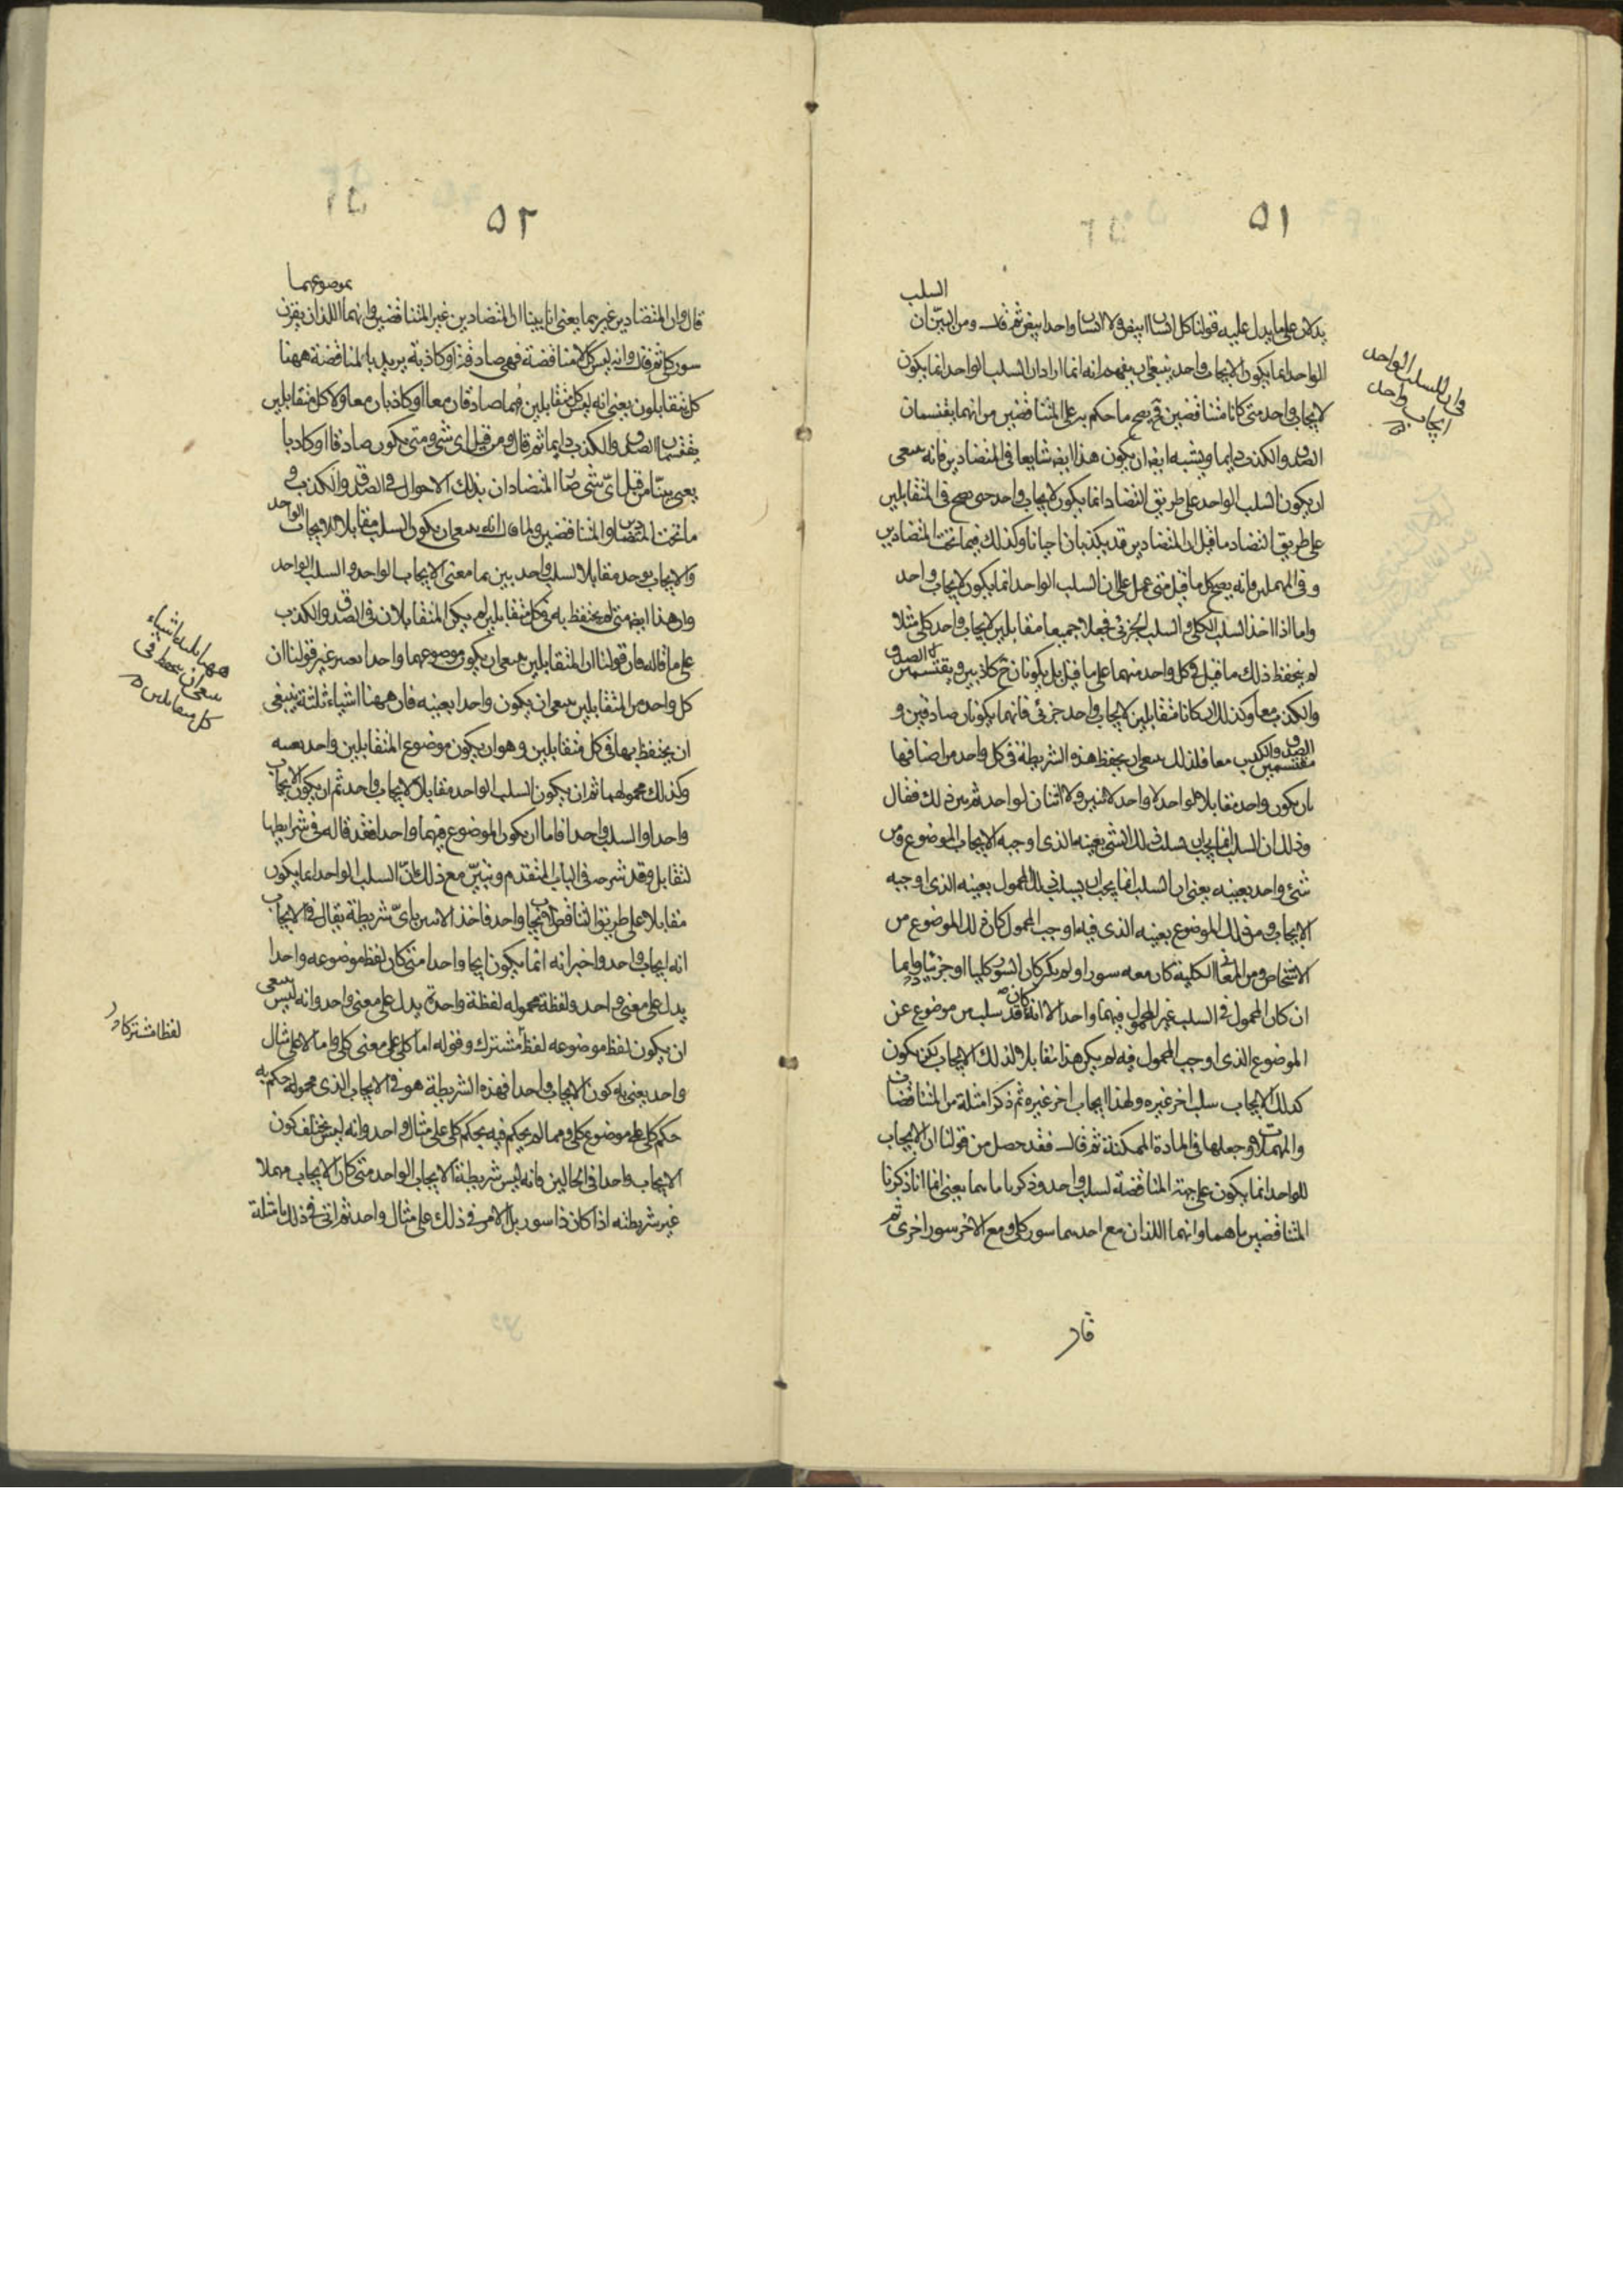 ٥١
السلب
يدلان على ما يدل عليه قولنا كل انسان ابيض ولا انسان واحد ابيض ثم قال ومن البيّن ان
الواحد انما يكون لايجاب واحد ينبغي ان يفهم انه انما اراد ان السلب الواحد انما يكون
لايجاب واحد متى كانا متناقضين فح يصح ما حكم به على المتناقضين من انهما يقتسمان
الصدق والكذب دايما ويشبه ايضا ان يكون هذا ايضا شايعا في المتضادين فانه ينبغي
ان يكون السلب الواحد على طريق التضاد انما يكون لايجاب واحد حتى يصح في المتقابلين
على طريق التضاد ما قيل ان المتضادين قد يكذبان احيانا وكذلك فيما تحت المتضادين
و في المهملين فانه يصح كل ما قيل متى عمل على ان السلب الواحد انما يكون لايجاب واحد
واما اذا اخذ السلب الكلي والسلب الجزئي فجعلا جميعا مقابلين لايجاب واحد كلي مثلا
لم ينحفظ ذلك ما قيل في كل واحد منهما على ما قيل بل يكونان ح كاذبين ويقتسمان الصدق
والكذب معا وكذلك ان كانا متقابلين لايجاب واحد جزئي فانهما يكونان صادقين و
مقتسمين الصدق والكذب معا فلذلك ينبغي ان ينحفظ هذه الشريطة في كل واحد من اصنافها
بان يكون واحد مقابلا لواحد لا واحد لاثنين ولا اثنان لواحد ثم بين ذلك فقال
وذلك ان السلب انما يجب ان يسلب ذلك الشي بعينه الذي اوجبه الايجاب لموضوع ومن
شيء واحد بعينه يعني ان السلب انما يجب ان يسلب ذلك المحمول بعينه الذي اوجبه
الايجاب ومن ذلك الموضوع بعينه الذي فيه اوجب المحمول كان ذلك الموضوع من
الاشخاص او من المعاني الكلية كان معه سور او لم يكن كان السور كليا او جزئيا وانما
ان كان المحمول في السلب غير المحمول فيهما واحدا الا انه كان قد سلب من موضوع عن
الموضوع الذي اوجب المحمول فيه لم يكن هذا مقابلا لذلك الايجاب لكن يكون
كذلك الايجاب سلب اخر غيره ولهذا ايجاب اخر غيره ثم ذكر امثلة من المتناقضات
والمهملات وجعلها في المادة الممكنة ثم قال فقد حصل من قولنا ان الايجاب
الواحد انما يكون على جهة المناقضة لسلب واحد وذكرنا ما هما يعني انما انا ذكرنا
المتناقضين ما هما وانهما اللذان مع احدهما سور كلي ومع الاخر سور اخرى ثم
قال
فان للسلب الواحد
ايجاب واحد
٥٢
موضوعهما
قال وان المتضادين غيرهما يعني انا بينا ان المتضادين غير المتناقضين وانهما اللذان يقرن
سور كلي ثم قال وانه ليس كل مناقضة فهي صادقة او كاذبة يريد بالمناقضة ههنا
كل متقابلون يعني انه ليس كل متقابلين فهما صادقان معا او كاذبان معا ولا كل متقابلين
يقتسمان الصدق والكذب دايما ثم قال ومن قبل اي شي ومتى يكون صادقا او كاذبا
يعني بينّا من قبل ايّ شي صار المتضادان بذلك الاحوال في الصدق والكذب و
ما تحت المتضادين والمتناقضين ولما قال انه ينبغي ان يكون السلب مقابلا للايجاب الواحد
والايجاب يوجد مقابلا لسلب واحد بين ما معنى الايجاب الواحد والسلب الواحد
وان هذا ايضا متى لم ينحفظ به في كل متقابلين لم يكن المتقابلان في الصدق والكذب
على ما قاله فان قولنا ان المتقابلين ينبغي ان يكون موضوعهما واحدا بعينه غير قولنا ان
كل واحد من المتقابلين ينبغي ان يكون واحدا بعينه فان ههنا اشياء ثلثة ينبغي
ان ينحفظ بها في كل متقابلين وهو ان يكون موضوع المتقابلين واحد بعينه
وكذلك محمولهما ثم ان يكون السلب الواحد مقابلا لايجاب واحد ثم ان يكون الايجاب
واحدا والسلب واحدا فاما ان يكون الموضوع فيهما واحدا فقد قاله في شرايطها
لتقابل وقد شرحه في الباب المتقدم وتبيّن مع ذلك انّ السلب الواحد انما يكون
مقابلا على طريق التناقض لايجاب واحد فاخذ الان يبين بايّ شريطة يقال في الايجاب
انه ايجاب واحد واخبر انه انما يكون ايجابا واحدا متى كان لفظ موضوعه واحدا
يدل على معنى واحد ولفظة محموله لفظة واحدة يدل على معنى واحد وانه ليس ينبغي
ان يكون لفظ موضوعه لفظا مشترك وقوله اما كلي على معنى كلي واما لا على مثال
واحد يعني به كون الايجاب واحدا فهذه الشريطة هو في الايجاب الذي محموله حكم به
حكم كلي على موضوع كلي ومما لم يحكم فيه بحكم كلي على مثال واحد وانه ليس يختلف كون
الايجاب واحدا في الحالين فانه ليس شريطة الايجاب الواحد متى كان الايجاب مهملا
غير شريطته اذا كان ذا سور بل الامر في ذلك على مثال واحد ثم اتى في ذلك بامثلة
ههنا ثلثة اشياء
ينبغي ان ينحفظ في
كل متقابلين
لفظا مشتركا